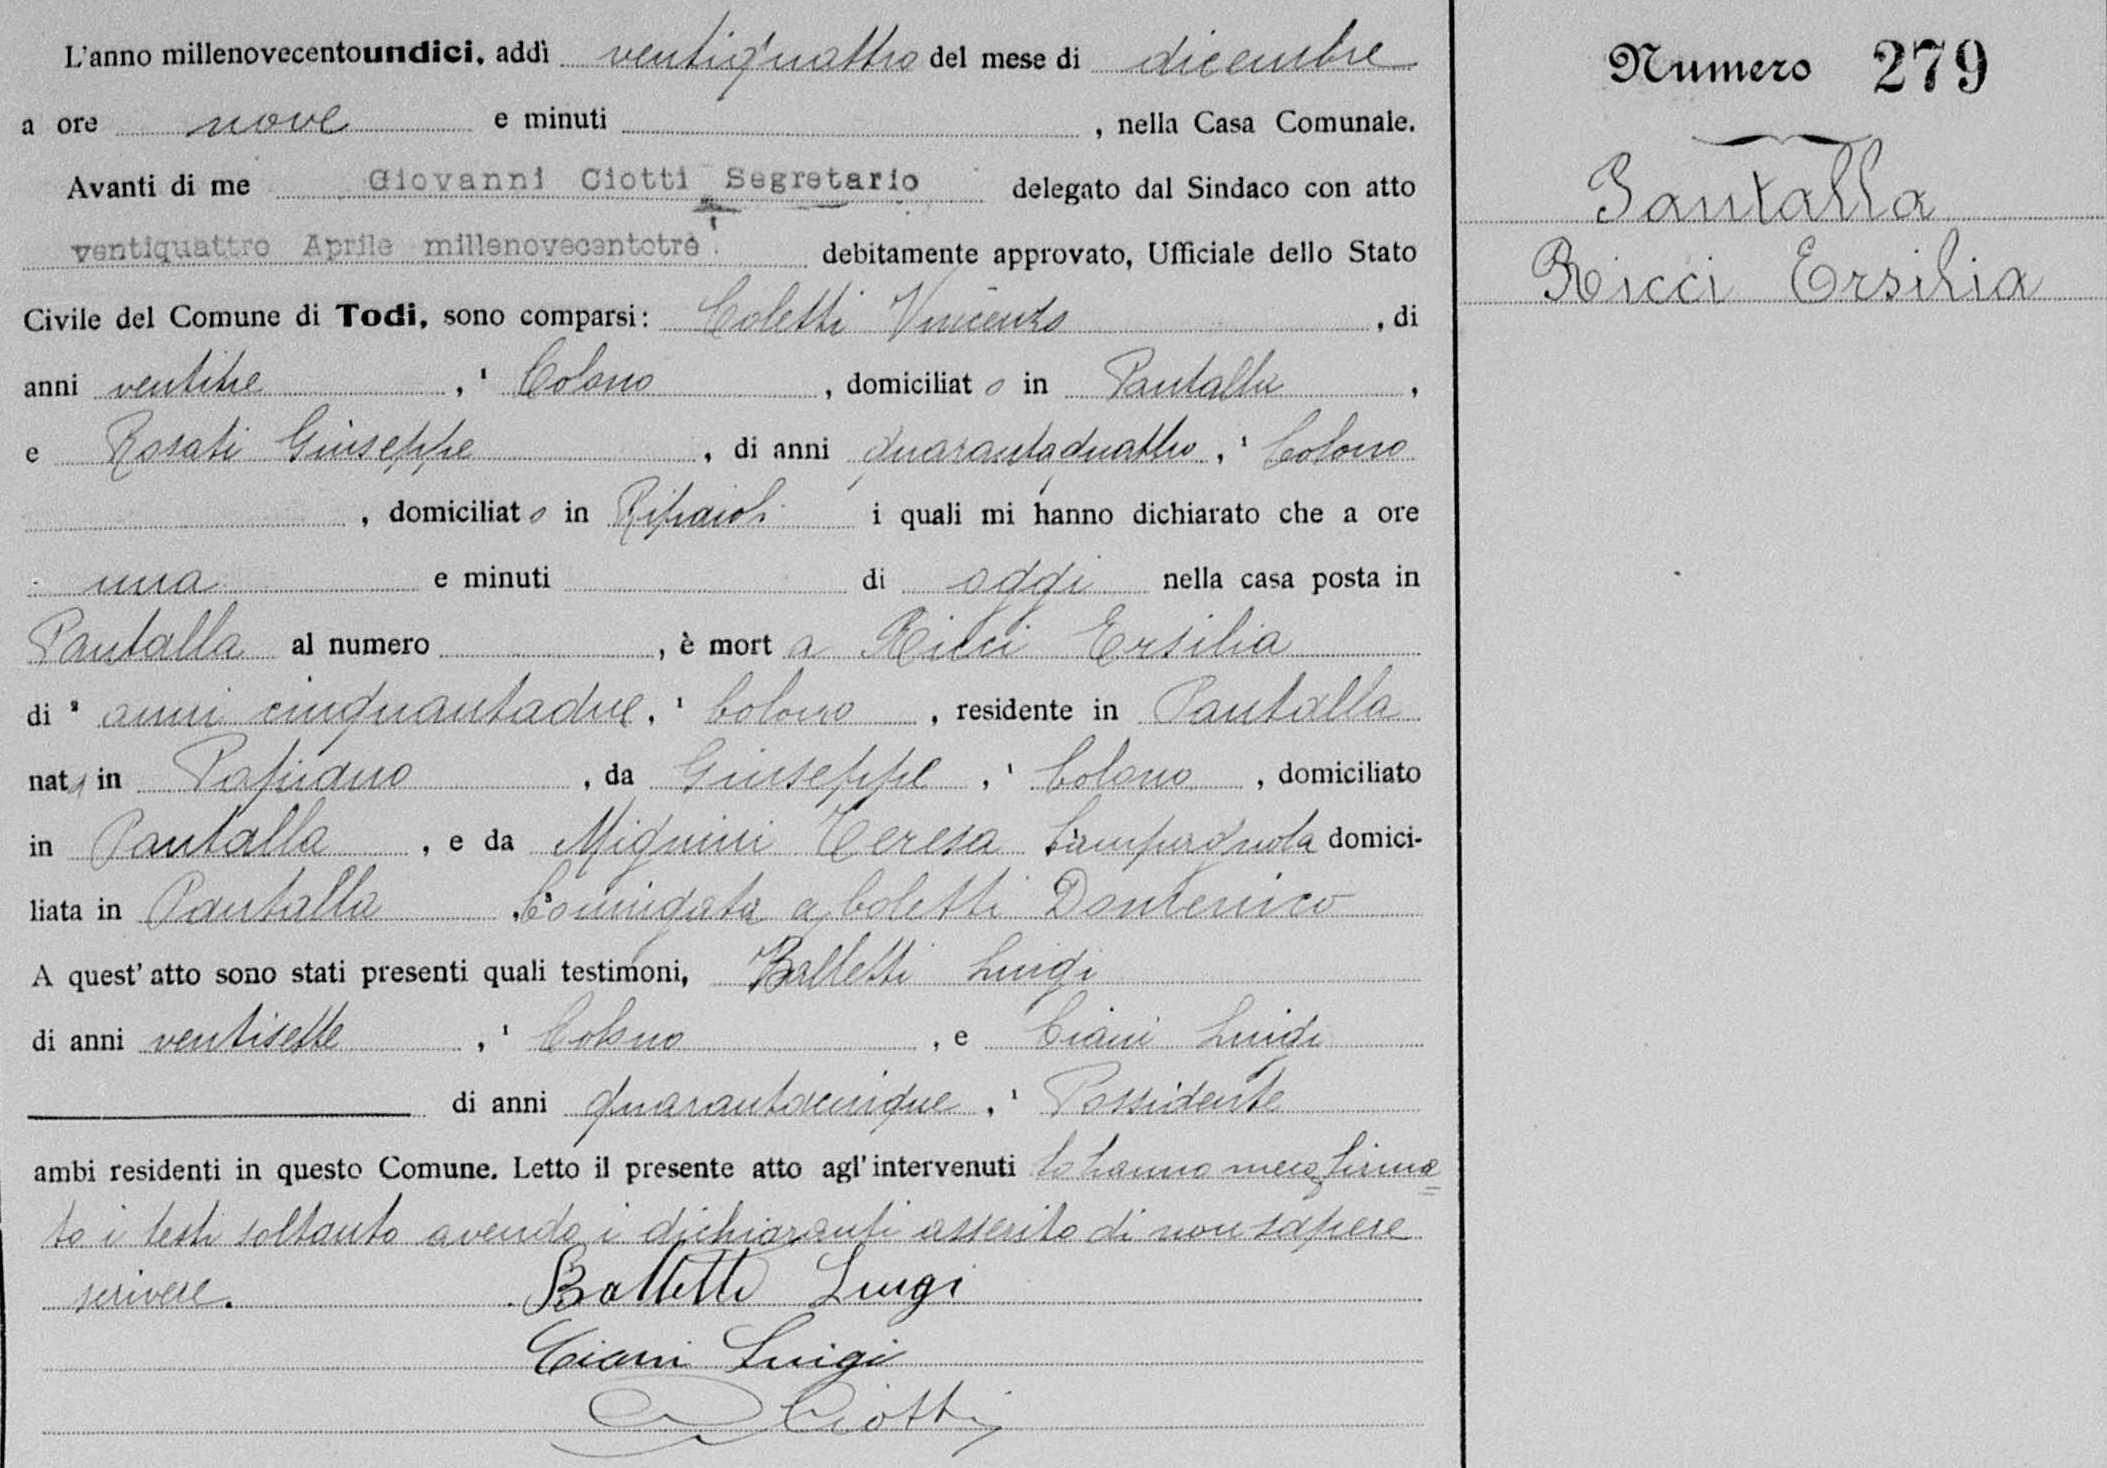 L'anno millenovecentoundici, addì ventiquattro del mese di dicembre
a ore nove e minuti , nella Casa Comunale.
Avanti di me Giovanni Ciotti Segretario delegato dal Sindaco con atto
ventiquattro Aprile millenovecentotrè debitamente approvato, Ufficiale dello Stato
Civile del Comune di Todi, sono comparsi: Coletti Vincenzo , di
anni ventitre , ¹ Colono , domiciliato in Pantalla ,
e Rosati Giuseppe , di anni quarantaquattro , ¹ Colono
, domiciliato in Ripaioli i quali mi hanno dichiarato che a ore
una e minuti di oggi nella casa posta in
Pantalla al numero , è morta Ricci Ersilia
di ² anni cinquantadue , ¹ Colono , residente in Pantalla
nata in Papiano , da Giuseppe , ¹ Colono , domiciliato
in Pantalla , e da Mignini Teresa Campagnola domici-
liata in Pantalla , Coniugata a Coletti Domenico
A quest'atto sono stati presenti quali testimoni, Balletti Luigi
di anni ventisette , ¹ Colono , e Ciani Luigi
di anni quarantacinque , ¹ Possidente
ambi residenti in questo Comune. Letto il presente atto agl'intervenuti lo hanno meco firma=
to i testi soltanto avendo i dichiaranti asserito di non sapere
scrivere.
Balletti Luigi
Ciani Luigi
GCiotti
Numero 279
Pantalla
Ricci Ersilia